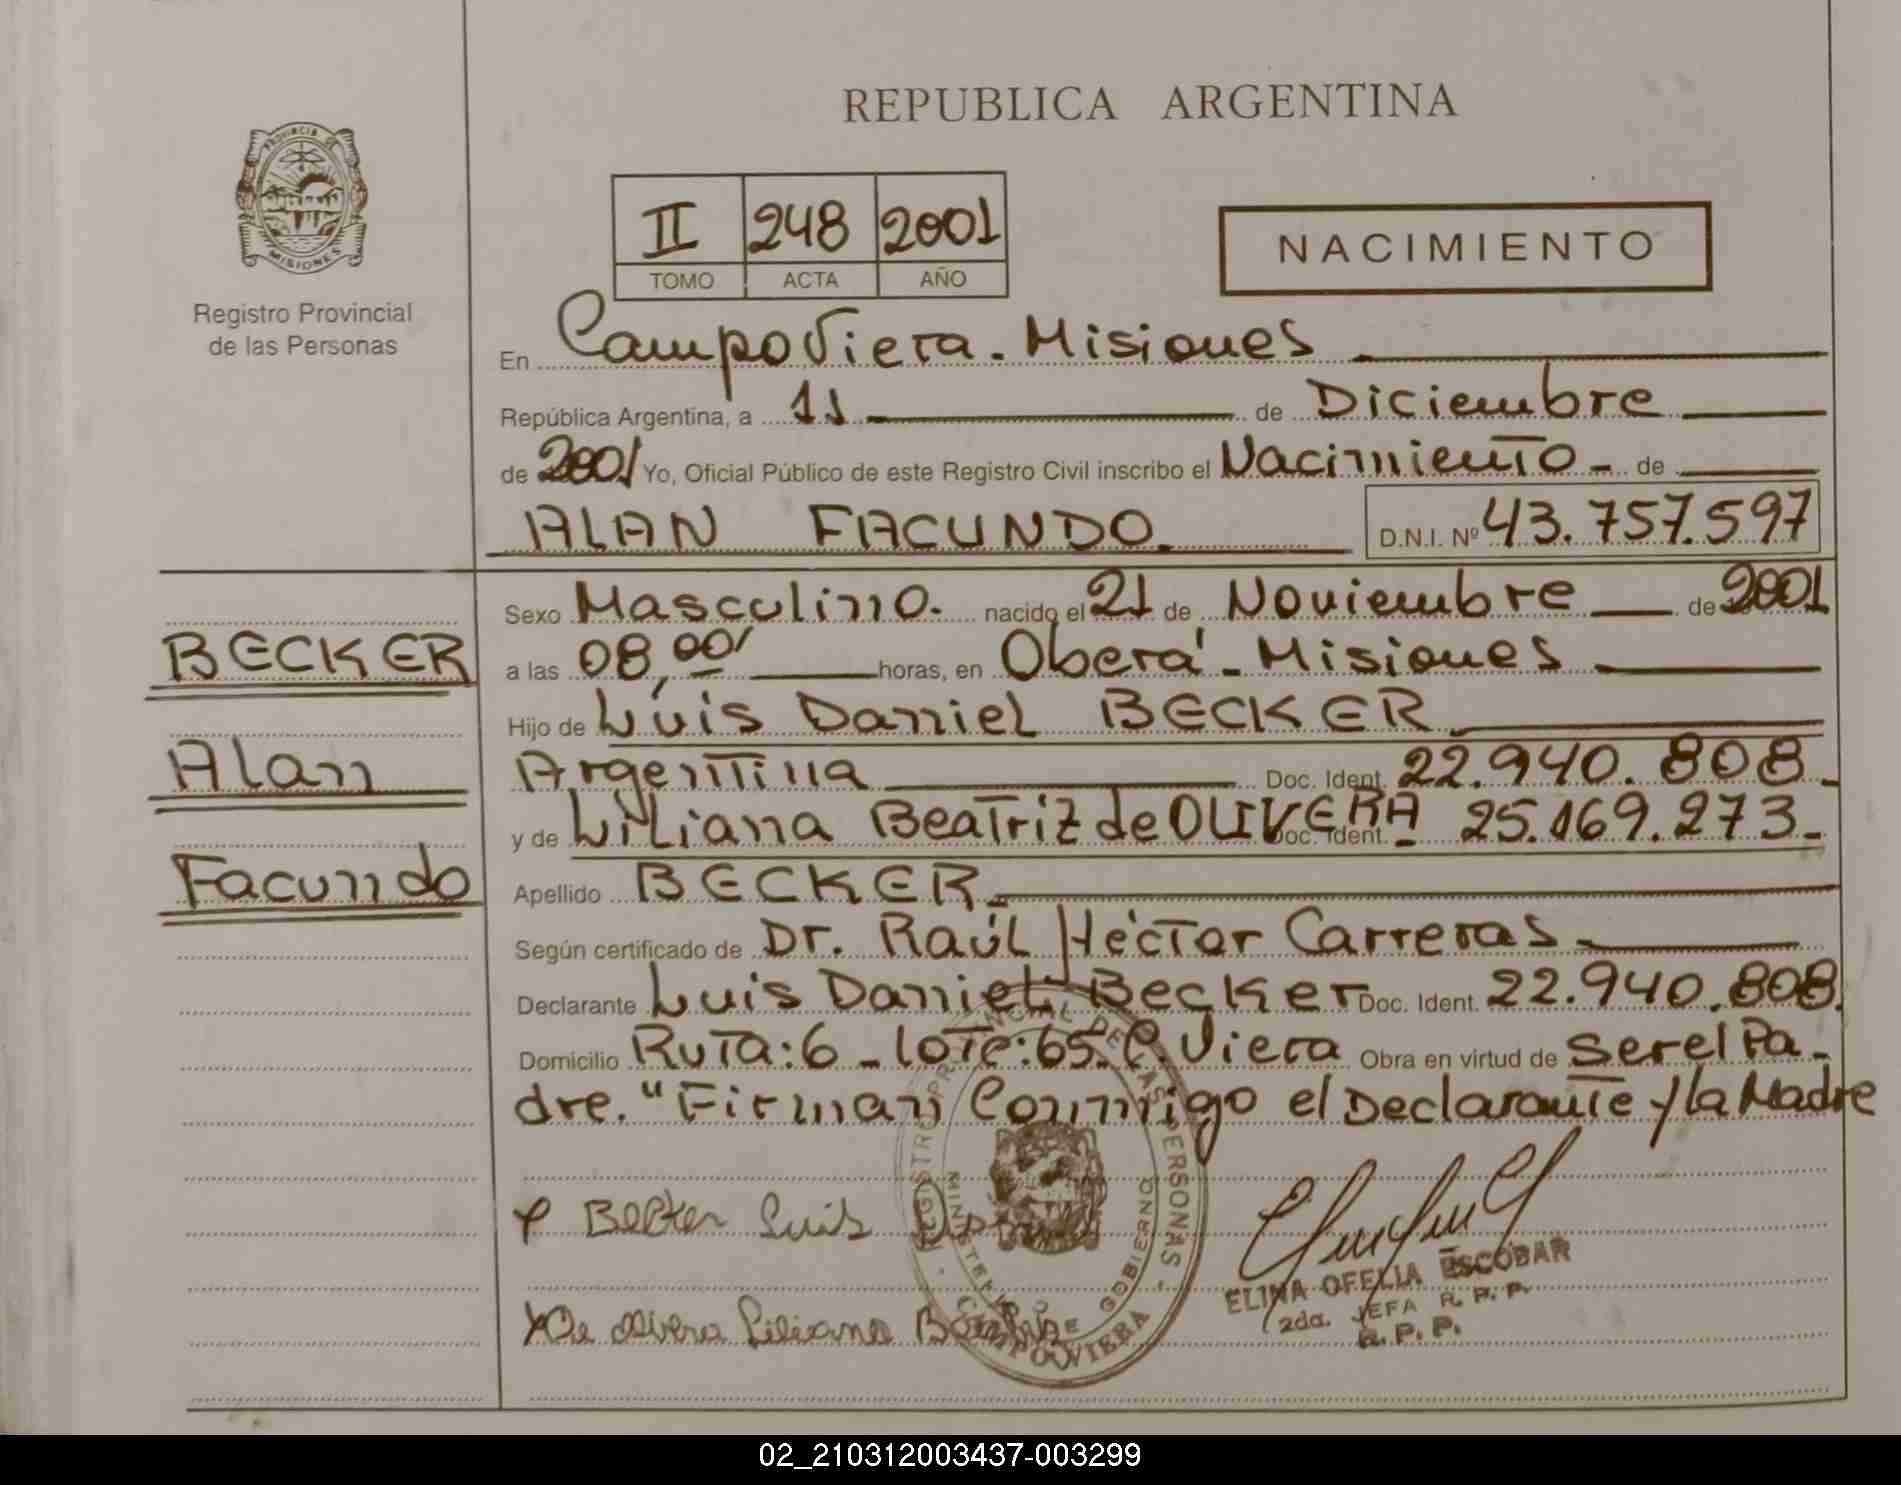 REPUBLICA ARGENTINA
PROVINCIA DE
MISIONES
Registro Provincial
de las Personas
II 248 2001
TOMO ACTA AÑO
NACIMIENTO
En Campo Viera - Misiones
República Argentina, a 11 de Diciembre
de 2001 Yo, Oficial Público de este Registro Civil inscribo el Nacimiento - de
ALAN FACUNDO. D.N.I. Nº 43.757.597
Sexo Masculino. nacido el 21 de Noviembre de 2001
BECKER
a las 08,00' horas, en Oberá - Misiones
Hijo de Luis Daniel BECKER
Alan
Argentina Doc. Ident. 22.940.808-
y de Liliana Beatriz de OLIVERA Doc. Ident. - 25.169.273-
Facundo
Apellido BECKER
Según certificado de Dr. Raúl Héctor Carreras
Declarante Luis Daniel Becker Doc. Ident. 22.940.808.
Domicilio Ruta:6 - lote:65. C. Viera Obra en virtud de ser el Pa-
dre. "Firman Conmigo el Declarante y la Madre
Becker Luis
De Olivera Liliana
REGISTRO PROVINCIAL DE LAS PERSONAS
MINISTERIO DE GOBIERNO
CAMPO VIERA
ELINA OFELIA ESCOBAR
2da. JEFA R. P. P.
R. P. P.
02_210312003437-003299